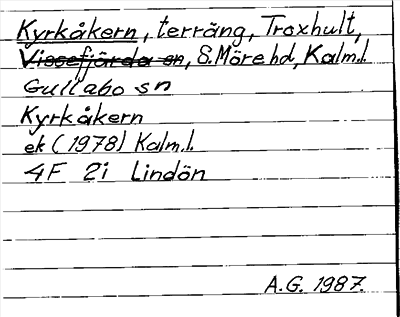 Kyrkåkern, terräng, Troxhult,
Vissefjärda sn, S. Möre hd, Kalm.l.
Gullabo sn
Kyrkåkern
ek (1978) Kalm.l.
4F 2i Lindön
A.G. 1987.